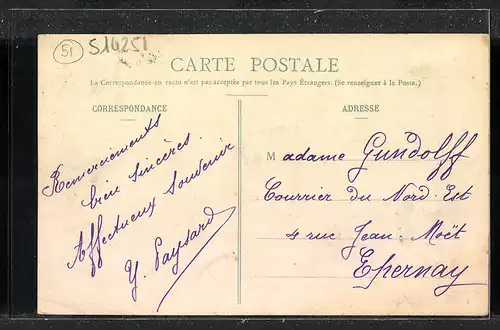 51
S14251
CARTE POSTALE
La Correspondance au recto n'est pas acceptée par tous les Pays Étrangers. (Se renseigner à la Poste.)
CORRESPONDANCE
Remerciements
bien sincères.
Affectueux Souvenir
Y. Paysard
ADRESSE
Madame Gundolff
Courrier du Nord-Est
4 rue Jean-Moët
Epernay